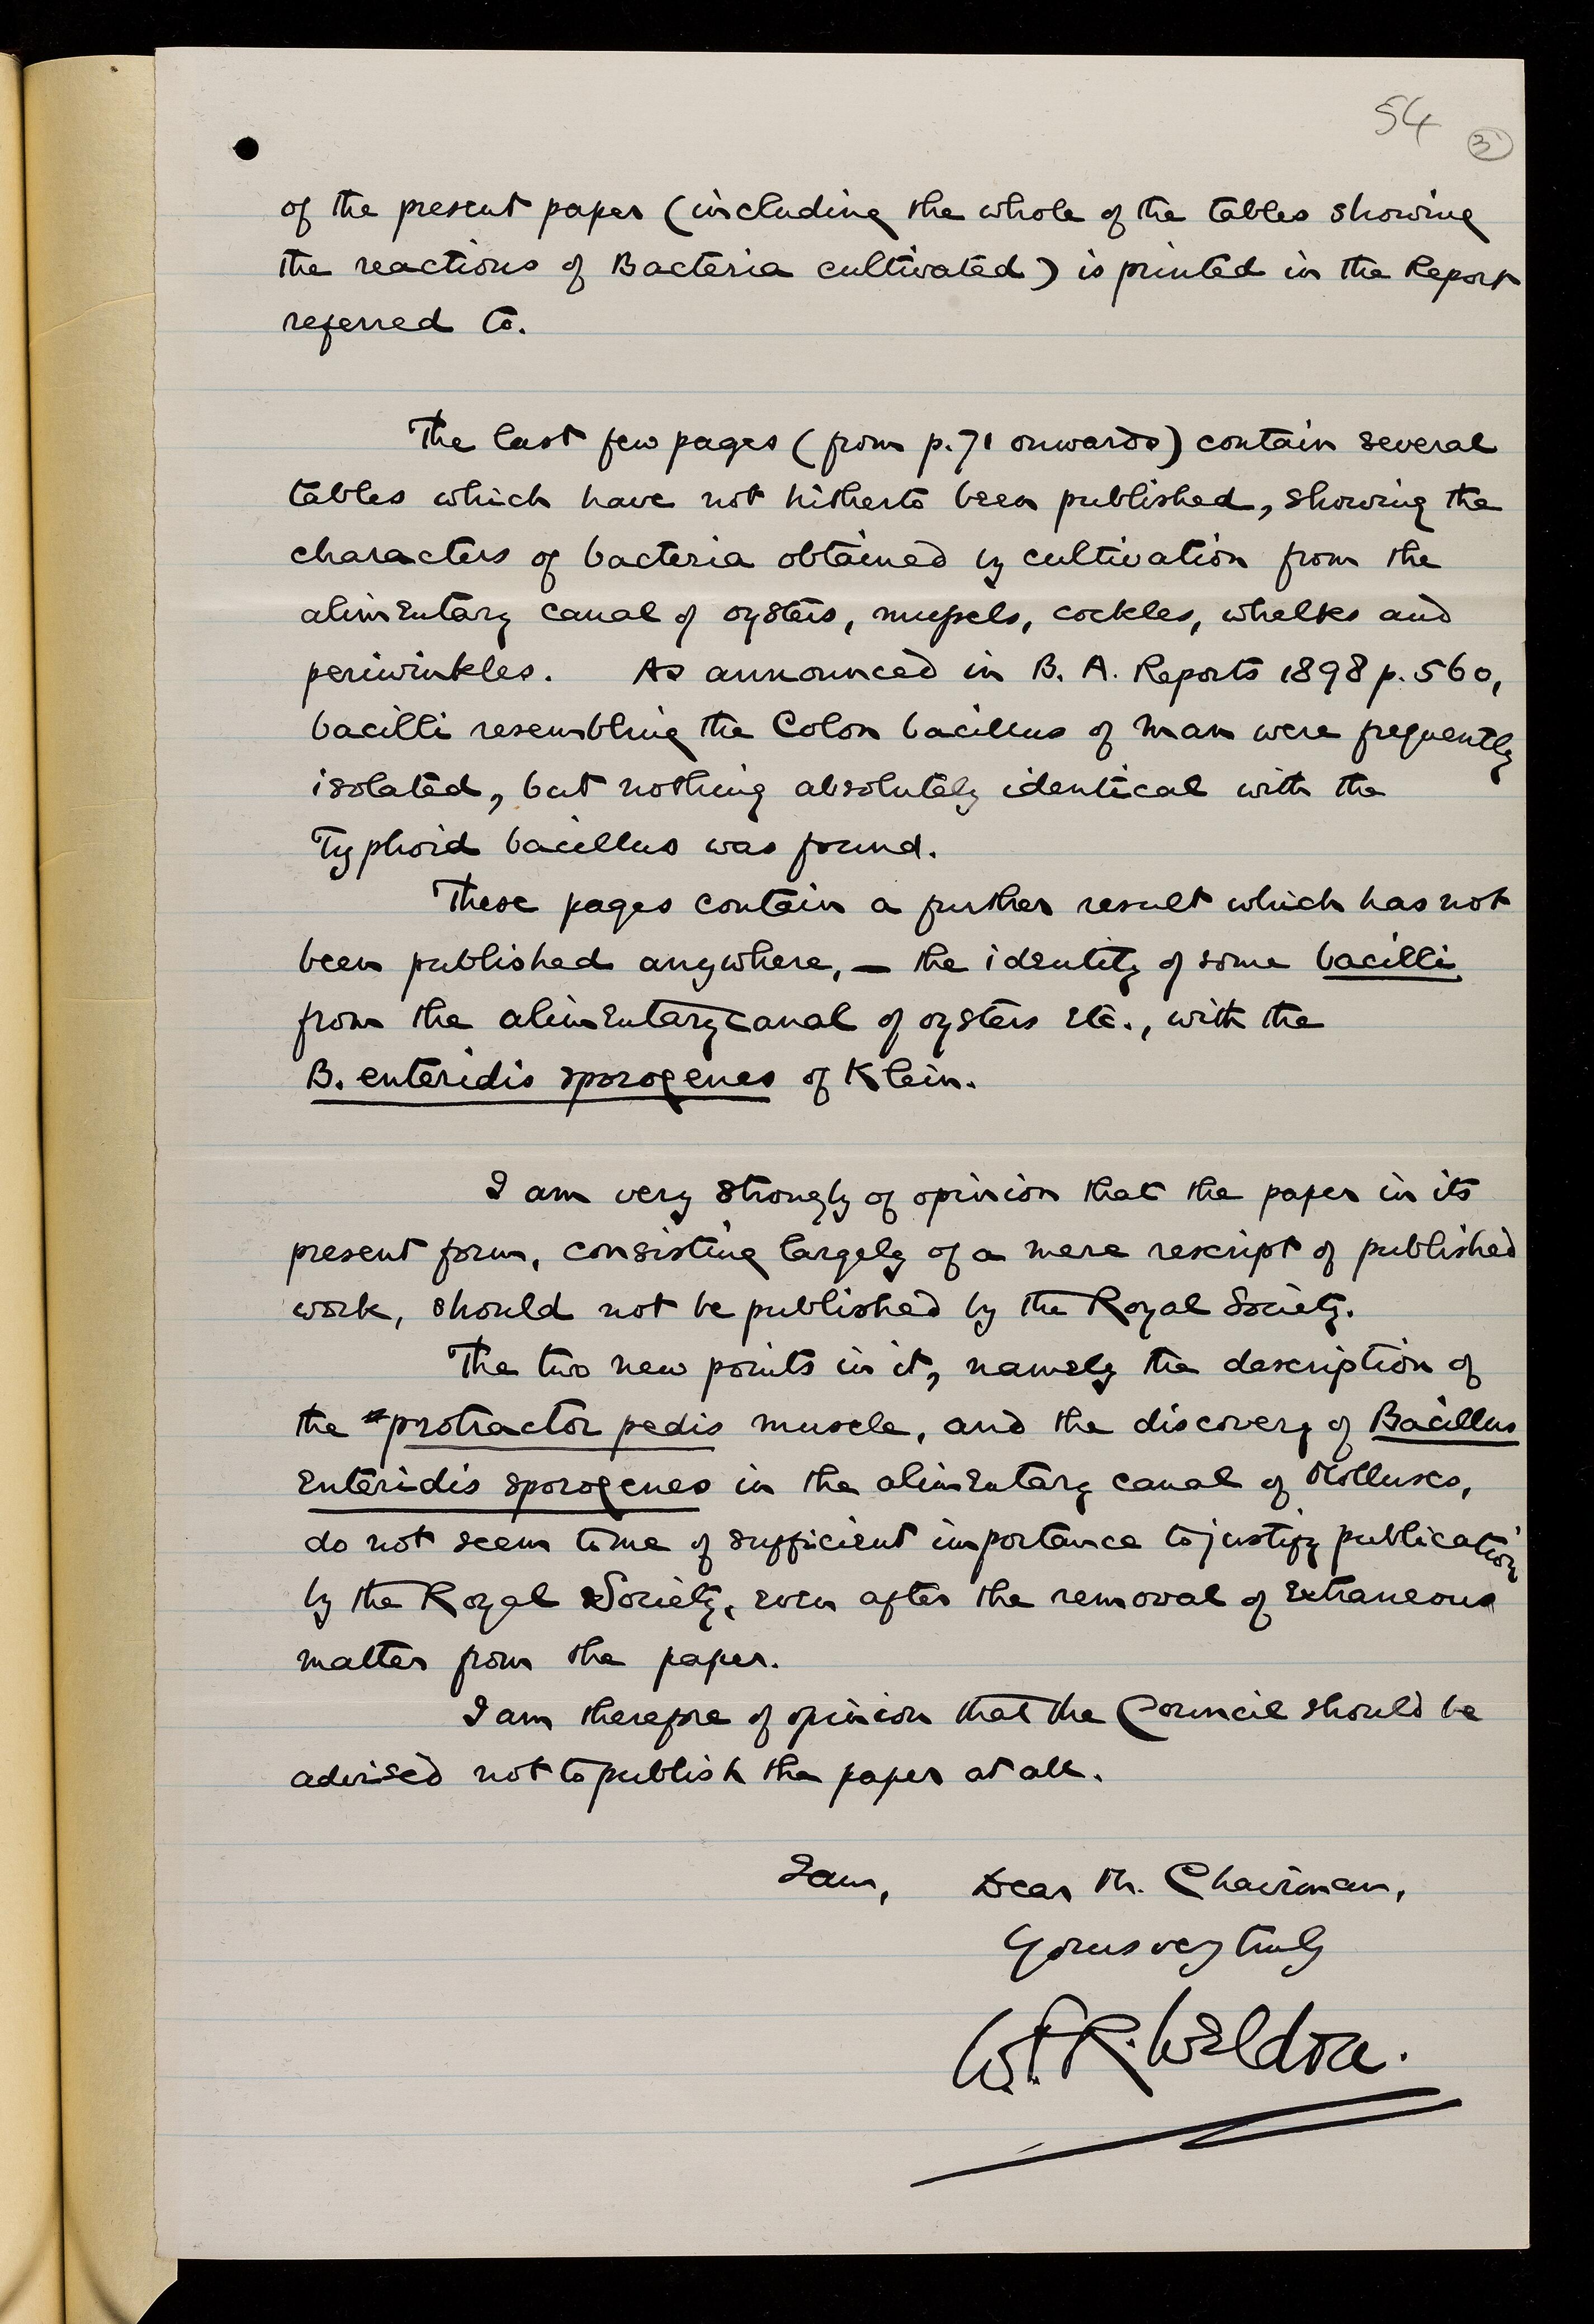 54
3
of the present paper (including the whole of the tables showing
the reactions of Bacteria cultivated) is printed in the Report
referred to.
The last few pages (from p. 71 onwards) contain several
tables which have not hitherto been published, showing the
characters of bacteria obtained by cultivation from the
alimentary canal of oysters, mussels, cockles, whelks and
periwinkles. As announced in B. A. Reports 1898 p. 560,
bacilli resembling the Colon bacillus of man were frequently
isolated, but nothing absolutely identical with the
Typhoid bacillus was found.
These pages contain a further result which has not
been published anywhere, — the identity of some bacilli
from the alimentary canal of oysters etc., with the
B. enteridis sporogenes of Klein.
I am very strongly of opinion that the paper in its
present form, consisting largely of a mere rescript of published
work, should not be published by the Royal Society.
The two new points in it, namely the description of
the protractor pedis muscle, and the discovery of Bacillus
enteridis sporogenes in the alimentary canal of Molluscs,
do not seem to me of sufficient importance to justify publication
by the Royal Society, even after the removal of extraneous
matter from the paper.
I am therefore of opinion that the Council should be
advised not to publish the paper at all.
I am, Dear Mr. Chairman,
Yours very truly
W. F. R. Weldon.